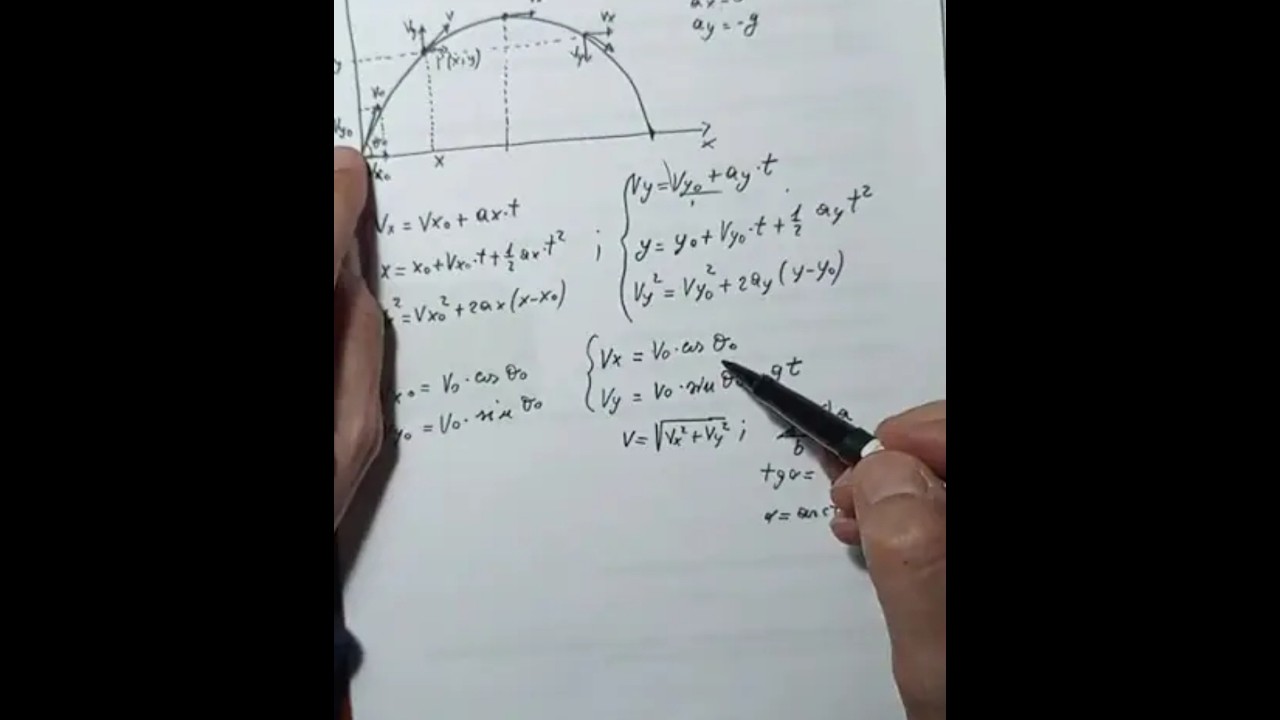 ay = -g
Vy V Vx
P(x,y) Vy
y
V₀
Vy₀ θ₀
Vx₀ x x
Vx = Vx₀ + ax·t
x = x₀ + Vx₀·t + 1/2 ax·t²
² = Vx₀² + 2ax (x-x₀)
;
Vy = Vy₀ + ay·t
y = y₀ + Vy₀·t + 1/2 ay t²
Vy² = Vy₀² + 2ay (y-y₀)
x₀ = V₀·cos θ₀
y₀ = V₀·sin θ₀
Vx = V₀·cos θ₀
Vy = V₀·sin θ₀ gt
V = √Vx² + Vy² ;
b
tg α =
α =